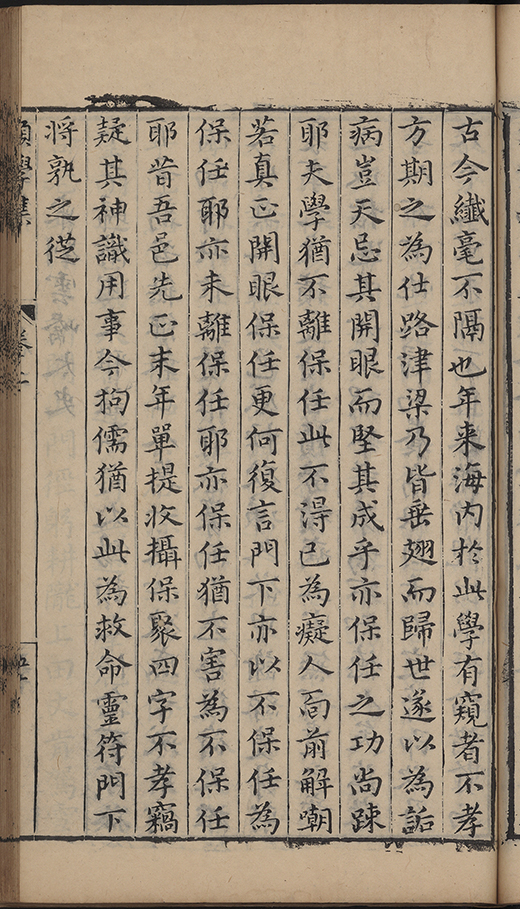 古今纖毫不隔也年来海内於此學有窺者不孝
方期之為仕路津梁乃皆垂翅而歸世遂以為詬
病豈天忌其開眼而堅其成乎亦保任之功尚踈
耶夫學猶不離保任此不得已為癡人面前解嘲
若真正開眼保任更何復言門下亦以不保任為
保任耶亦未離保任耶亦保任猶不害為不保任
耶昔吾邑先正末年單提收攝保聚四字不孝竊
疑其神識用事今拘儒猶以此為救命靈符門下
將孰之從
學集